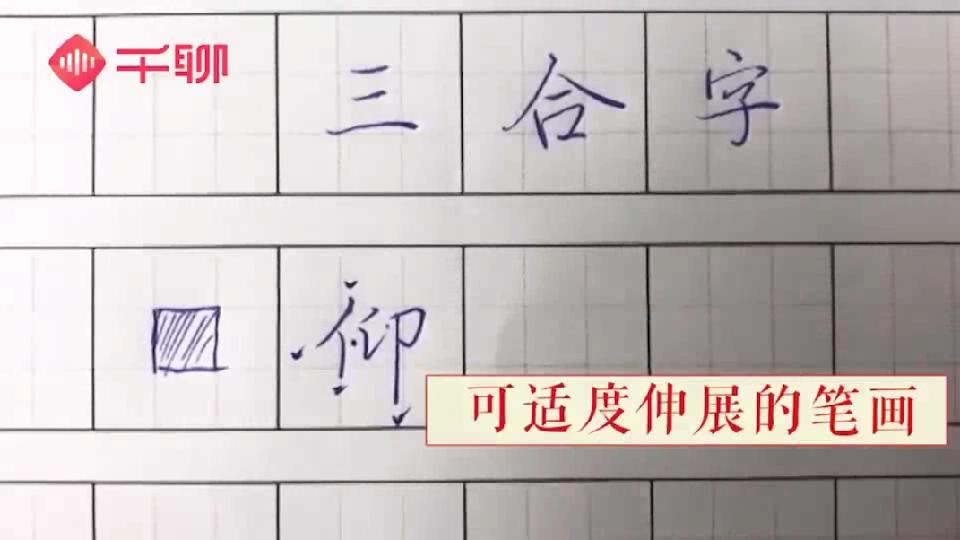 千聊
三合字
仰
可适度伸展的笔画